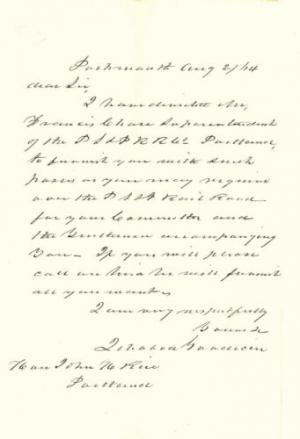 Portsmouth Aug 2/64
dear Sir,
I have directed Mr,
Francis Chase Superintendent
of the P S & P R R Co Portland,
to furnish you with such
passes as you may require
over the P S & P Rail Road
for your Committee and
the Gentlemen accompanying
You - If you will please
call on him he will furnish
all you want -
I am very respectfully
Yours &
Ichabod Goodwin
Hon John H Rice
Portland